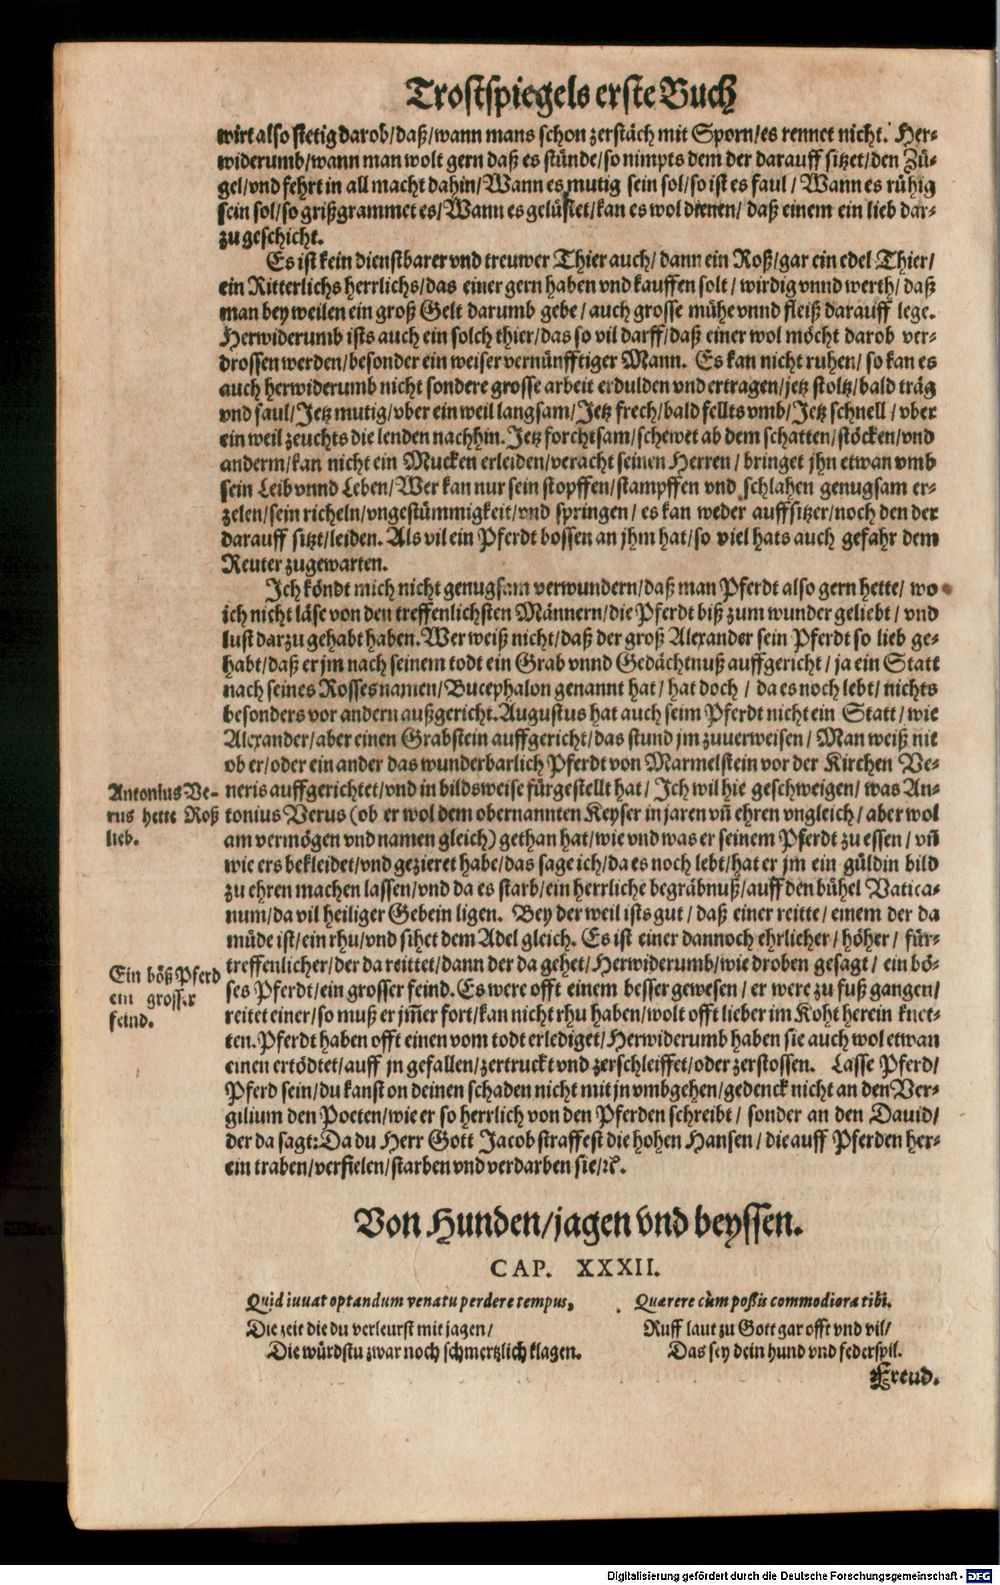 Trostspiegels erste Buch
wirt also stetig darob/daß/wann mans schon zerstäch mit Sporn/es rennet nicht. Her-
widerumb/wann man wolt gern daß es stünde/so nimpts dem der darauff sitzet/den Zü-
gel/vnd fehrt in all macht dahin/Wann es mutig sein sol/so ist es faul/Wann es rühig
sein sol/so grißgrammet es/Wann es gelüstet/kan es wol dienen/daß einem ein lieb dar-
zu geschicht.
Es ist kein dienstbarer vnd treuwer Thier auch/dann ein Roß/gar ein edel Thier/
ein Ritterlichs herrlichs/das einer gern haben vnd kauffen solt/wirdig vnnd werth/daß
man bey weilen ein groß Gelt darumb gebe/auch grosse mühe vnnd fleiß darauff lege.
Herwiderumb ists auch ein solch thier/das so vil darff/daß einer wol möcht darob ver-
drossen werden/besonder ein weiser vernünfftiger Mann. Es kan nicht ruhen/so kan es
auch herwiderumb nicht sondere grosse arbeit erdulden vnd ertragen/jetz stoltz/bald träg
vnd faul/Jetz mutig/vber ein weil langsam/Jetz frech/bald fellts vmb/Jetz schnell/vber
ein weil zeuchts die lenden nachhin. Jetz forchtsam/schewet ab dem schatten/stöcken/vnd
anderm/kan nicht ein Mucken erleiden/veracht seinen Herren/bringet jhn etwan vmb
sein Leib vnnd Leben/Wer kan nur sein stopffen/stampffen vnd schlahen genugsam er-
zelen/sein richeln/vngestümmigkeit/vnd springen/es kan weder auffsitzer/noch den der
darauff sitzt/leiden. Als vil ein Pferdt bossen an jhm hat/so viel hats auch gefahr dem
Reuter zugewarten.
Ich köndt mich nicht genugsam verwundern/daß man Pferdt also gern hette/wo
ich nicht läse von den treffenlichsten Männern/die Pferdt biß zum wunder geliebt/vnd
lust darzu gehabt haben. Wer weiß nicht/daß der groß Alexander sein Pferdt so lieb ge-
habt/daß er jm nach seinem todt ein Grab vnnd Gedächtnuß auffgericht/ja ein Statt
nach seines Rosses namen/Bucephalon genannt hat/hat doch/da es noch lebt/nichts
besonders vor andern außgericht. Augustus hat auch seim Pferdt nicht ein Statt/wie
Alexander/aber einen Grabstein auffgericht/das stund jm zuuerweisen/Man weiß nit
ob er/oder ein ander das wunderbarlich Pferdt von Marmelstein vor der Kirchen Ve-
neris auffgerichtet/vnd in bildsweise fürgestellt hat/Ich wil hie geschweigen/was An-
Antonius Ve-
rus hette Roß
lieb.
tonius Verus (ob er wol dem obernannten Keyser in jaren vñ ehren vngleich/aber wol
am vermögen vnd namen gleich) gethan hat/wie vnd was er seinem Pferdt zu essen/vñ
wie ers bekleidet/vnd gezieret habe/das sage ich/da es noch lebt/hat er jm ein güldin bild
zu ehren machen lassen/vnd da es starb/ein herrliche begräbnuß/auff den bühel Vatica-
num/da vil heiliger Gebein ligen. Bey der weil ists gut/daß einer reitte/einem der da
müde ist/ein rhu/vnd sihet dem Adel gleich. Es ist einer dannoch ehrlicher/höher/für-
treffenlicher/der da reittet/dann der da gehet/Herwiderumb/wie droben gesagt/ein bö-
Ein böß Pferd
ein grosser
feind.
ses Pferdt/ein grosser feind. Es were offt einem besser gewesen/er were zu fuß gangen/
reitet einer/so muß er jm̃er fort/kan nicht rhu haben/wolt offt lieber im Koht herein knet-
ten. Pferdt haben offt einen vom todt erlediget/Herwiderumb haben sie auch wol etwan
einen ertödtet/auff jn gefallen/zertruckt vnd zerschleiffet/oder zerstossen. Lasse Pferd/
Pferd sein/du kanst on deinen schaden nicht mit jn vmbgehen/gedenck nicht an den Ver-
gilium den Poeten/wie er so herrlich von den Pferden schreibt/sonder an den Dauid/
der da sagt: Da du Herr Gott Jacob straffest die hohen Hansen/die auff Pferden her-
ein traben/verfielen/starben vnd verdarben sie/ꝛc.
Von Hunden/jagen vnd beyssen.
CAP. XXXII.
Quid iuuat optandum venatu perdere tempus,
Quærere cùm poßis commodiora tibi.
Die zeit die du verleurst mit jagen/
Die würdstu zwar noch schmertzlich klagen.
Ruff laut zu Gott gar offt vnd vil/
Das sey dein hund vnd federspil.
Freud.
Digitalisierung gefördert durch die Deutsche Forschungsgemeinschaft - DFG